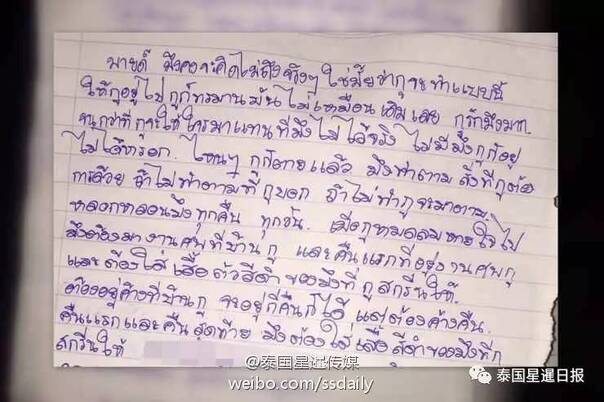 มายด์ มึงคงจะคิดไม่ถึงจริงๆ ใช่มั้ยว่ากูจะทำแบบนี้
ให้กูอยู่ไปกูก็ทรมานมันไม่เหมือนเดิมเลย กูรักมึงมาก
กว่าที่กูจะให้ใครมาแทนที่มึงไม่ได้จริง ไม่มีมึงกูก็อยู่
ไม่ได้หรอก. ไหนๆ กูก็ตายแล้ว มึงทำตาม สิ่งที่กูต้อง
การด้วย ถ้าไม่ทำตามที่กูบอก ถ้าไม่ทำกูจะมาตาม
หลอกหลอนมึงทุกคืน ทุกวัน. เมื่อกูหมดลมหายใจไป
มึงต้องมางานศพที่บ้านกู และคืนแรกที่อยู่งานศพกู
และต้องใส่เสื้อตัวสีดำของมึงที่กูสกรีนให้.
ต้องอยู่ค้างที่บ้านกู จะอยู่กี่คืนก็ได้ แต่ต้องค้างคืน.
คืนแรกและคืนสุดท้าย มึงต้องใส่เสื้อสีดำของมึงที่กู
สกรีนให้
@泰国星暹传媒
weibo.com/ssdaily
泰国星暹日报